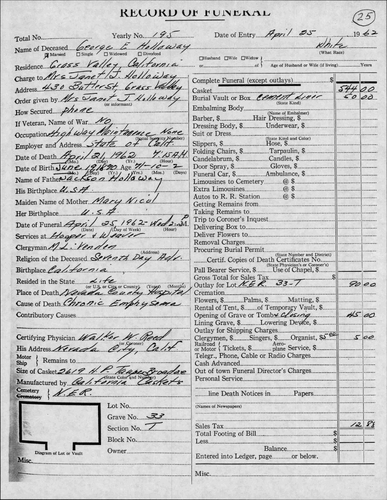 RECORD OF FUNERAL
25
Total No. Yearly No. 195 Date of Entry April 25 1962
Name of Deceased George E Holloway White
Married Single Widowed Divorced Husband Wife Widow of (What Race)
Residence Grass Valley, California Age of Husband or Wife (if living) Years
Charge to Mrs Janet J. Holloway
Address 430 Sutter St, Grass Valley
Order given by Mrs Janet J. Holloway
How Secured phone
If Veteran, of War No
Occupation Highway Maintenance None
Employer and Address State of Calif.
Date of Death April 21, 1962 7:15 A.M.
Date of Birth 1890 Age 71-10-2
Name of Father Jackson Holloway
His Birthplace U.S.A
Maiden Name of Mother Mary Nicol
Her Birthplace U.S.A
Date of Funeral April 25 1962 - Wed 2 P
Services at Hooper & Weaver
Clergyman M.L. Venden
Religion of the Deceased Seventh Day Adv.
Birthplace California
Resided in the State Life
Place of Death Nevada County Hospital
Cause of Death Chronic Emphysema
Contributory Causes
Certifying Physician Walter W Reed
His Address Nevada City, Calif
Motor Ship Remains to
Size of Casket 2619 H.P.
Manufactured by California Caskets
Cemetery Crematory N.E.R.
Lot No.
Grave No. 33
Section No. T
Block No.
Owner
Diagram of Lot or Vault
Misc.
Complete Funeral (except outlays) $
Casket 544 00
Burial Vault or Box Cement Liner 50 00
(State Kind)
Embalming Body
(Name of Embalmer)
Barber, $ Hair Dressing, $
Dressing Body, $ Underwear, $
Suit or Dress
(State Kind and Color)
Slippers, $ Hose, $
Folding Chairs, $ Tarpaulin, $
Candelabrum, $ Candles, $
Door Spray, $ Gloves, $
Funeral Car, $ Ambulance, $
Limousines to Cemetery @ $
Extra Limousines @ $
Autos to R. R. Station @ $
Getting Remains from
Taking Remains to
Trip to Coroner's Inquest
Delivering Box to
Deliver Flowers to
Removal Charges
Procuring Burial Permit
(State Number and District)
Certif. Copies of Death Certificates No.
Pall Bearer Service, $ Use of Chapel, $
Gross Total for Sales Tax $
Outlay for Lot N.E.R. 33-T 90 00
Cremation
Flowers, $ Palms, $ Matting, $
Rental of Tent, $ of Temporary Vault, $
Opening of Grave or Tomb & Closing 45 00
Lining Grave, $ Lowering Device, $
Outlay for Shipping Charges
Clergymen, $ Singers, $ Organist, $5.00 5 00
Railroad Motor Tickets, $ Aeroplane Service, $
Telegr., Phone, Cable or Radio Charges
Cash Advanced
Out of town Funeral Director's Charges
Personal Service
line Death Notices in Papers
(Names of Newspapers)
Sales Tax
Total Footing of Bill $
Less
Balance $
Entered into Ledger, page or below.
Misc.